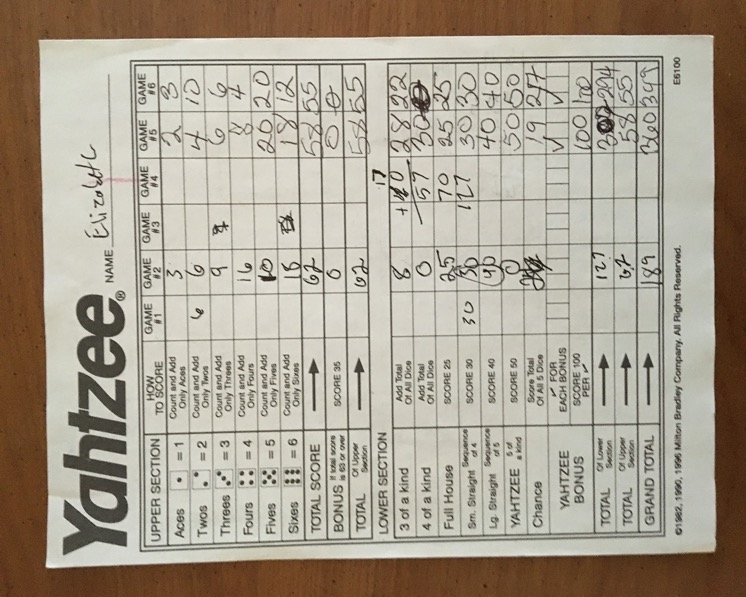 Yahtzee® NAME Elizabeth
UPPER SECTION HOW TO SCORE GAME #1 GAME #2 GAME #3 GAME #4 GAME #5 GAME #6
Aces = 1 Count and Add Only Aces 3 2 3
Twos = 2 Count and Add Only Twos 6 6 4 10
Threes = 3 Count and Add Only Threes 9 6 6
Fours = 4 Count and Add Only Fours 16 8 4
Fives = 5 Count and Add Only Fives 10 20 20
Sixes = 6 Count and Add Only Sixes 18 18 12
TOTAL SCORE 62 58 55
BONUS If total score is 63 or over SCORE 35 0 0 0
TOTAL Of Upper Section 62 58 55
LOWER SECTION 17
3 of a kind Add Total Of All Dice 8 28 22
4 of a kind Add Total Of All Dice 0 57 30
Full House SCORE 25 25 70 25 25
Sm. Straight Sequence of 4 SCORE 30 30 30 127 30 30
Lg. Straight Sequence of 5 SCORE 40 40 40 40
YAHTZEE 5 of a kind SCORE 50 0 50 50
Chance Score Total Of All 5 Dice 19 27
YAHTZEE BONUS ✓ FOR EACH BONUS ✓ ✓
SCORE 100 PER ✓ 100 100
TOTAL Of Lower Section 127 302 294
TOTAL Of Upper Section 62 58 55
GRAND TOTAL 189 360 349
©1982, 1990, 1996 Milton Bradley Company. All Rights Reserved. E6100